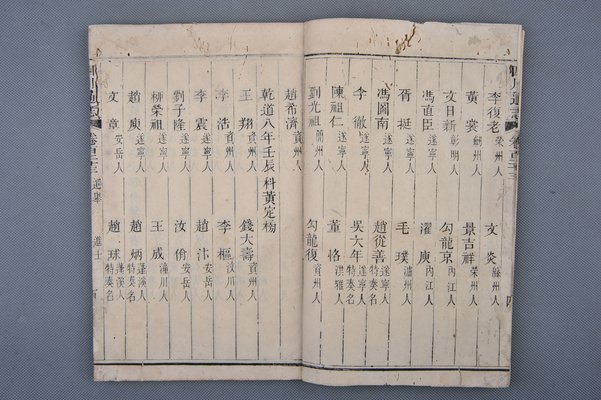 李復老 榮州人 文炎 緜州人
黃裳 劒州人 景吉祥 榮州人
文日新 彰明人 勾龍京 內江人
馮直臣 遂寧人 濯庚 內江人
胥挺 潼川人 毛璞 瀘州人
馮圖南 遂寧人 趙從善 遂寧人 特奏名
李徹 遂寧人 吳六年 遂寧人 特奏名
陳祖仁 遂寧人 董格 洪雅人
劉光祖 簡州人 勾龍復 資州人
趙希濟 資州人
乾道八年壬辰科黃定榜
王翔 資州人 錢大壽 資州人
李浩 資州人 李樞 汶川人
李震 遂寧人 趙汴 安岳人
劉子隆 遂寧人 汝份 安岳人
柳榮祖 遂寧人 王成 潼川人
趙庚 遂寧人 趙炳 蓬溪人 特奏名
文章 安岳人 趙球 蓬溪人 特奏名
選舉 進士